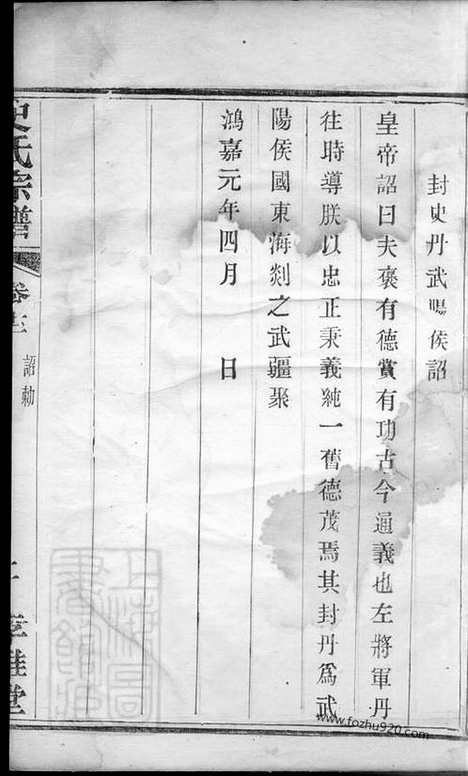 封史丹武陽侯詔
皇帝詔曰夫褒有德賞有功古今通義也左將軍丹
往時導朕以忠正秉義純一舊德茂焉其封丹爲武
陽侯國東海剡之武疆聚
鴻嘉元年四月 日
史氏宗譜
詔勅
www.fozhu920.com